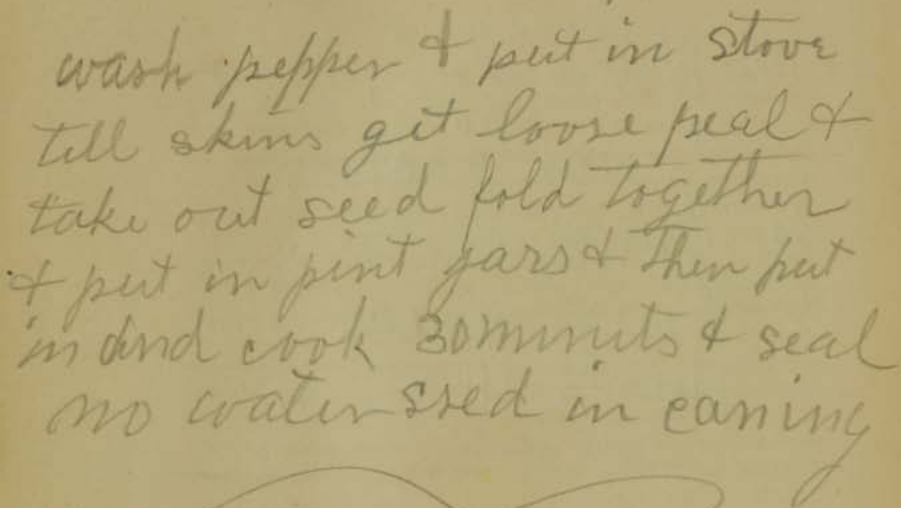 wash pepper & put in stove
till skins get loose peal &
take out seed fold together
& put in pint jars & then put
in and cook 30 minuts & seal
no water used in caning